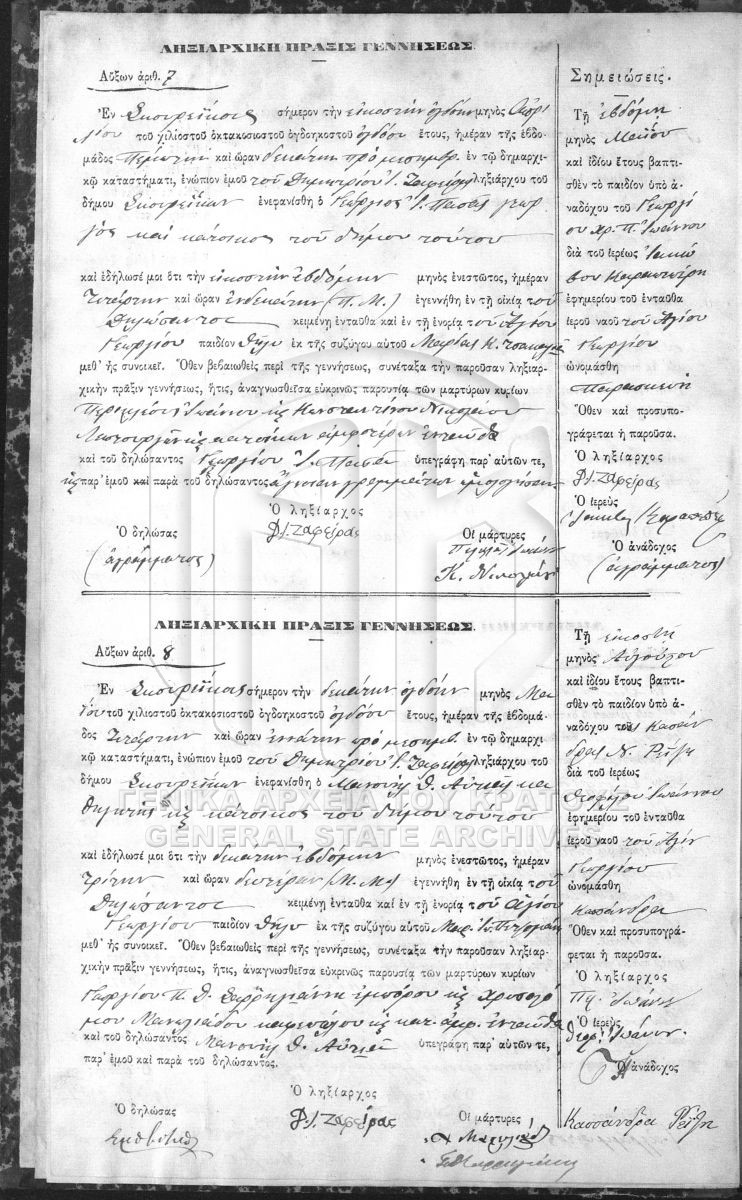 ΛΗΞΙΑΡΧΙΚΗ ΠΡΑΞΙΣ ΓΕΝΝΗΣΕΩΣ.
Αὔξων ἀριθ. 7
Ἐν σήμερον τὴν εἰκοστὴν ὀγδόην μηνὸς Ἀπρι
λίου τοῦ χιλιοστοῦ ὀκτακοσιοστοῦ ὀγδοηκοστοῦ ὀγδόου ἔτους, ἡμέραν τῆς ἑβδο-
μάδος Πέμπτην καὶ ὥραν δεκάτην πρὸ μεσημβρ. ἐν τῷ δημαρχι-
κῷ καταστήματι, ἐνώπιον ἐμοῦ τοῦ Δημητρίου Ι. Ζαφείρα ληξιάρχου τοῦ
δήμου ἐνεφανίσθη ὁ Γεώργιος Ι. γεωρ
γὸς καὶ κάτοικος τοῦ δήμου τούτου
καὶ ἐδήλωσέ μοι ὅτι τὴν εἰκοστὴν ἑβδόμην μηνὸς ἐνεστῶτος, ἡμέραν
Τετάρτην καὶ ὥραν ἑνδεκάτην (Π. Μ.) ἐγεννήθη ἐν τῇ οἰκίᾳ τοῦ
δηλώσαντος κειμένῃ ἐνταῦθα καὶ ἐν τῇ ἐνορίᾳ τοῦ Ἁγίου
Γεωργίου παιδίον θῆλυ ἐκ τῆς συζύγου αὐτοῦ Μαρίας Κ.
μεθ' ἧς συνοικεῖ. Ὅθεν βεβαιωθεὶς περὶ τῆς γεννήσεως, συνέταξα τὴν παροῦσαν ληξιαρ-
χικὴν πρᾶξιν γεννήσεως, ἥτις, ἀναγνωσθεῖσα εὐκρινῶς παρουσίᾳ τῶν μαρτύρων κυρίων
Περικλέους Ἰωάννου κ Κωνσταντίνου Νικολάου
κατοίκων ἀμφοτέρων ἐνταῦθα
καὶ τοῦ δηλώσαντος Γεωργίου Ι. ὑπεγράφη παρ' αὐτῶν τε,
παρ' ἐμοῦ καὶ παρὰ τοῦ δηλώσαντος ἄγνοιαν γραμμάτων ὁμολογήσαν
Ὁ ληξίαρχος
Ὁ δηλώσας Δ. Ι. Ζαφείρας Οἱ μάρτυρες
(ἀγράμματος)
Κ.
Σημειώσεις.
Τῇ ἑβδόμῃ
μηνὸς Μαΐου
καὶ ἰδίου ἔτους βαπτι-
σθὲν τὸ παιδίον ὑπὸ ἀ-
ναδόχου τοῦ Γεωργί
ου Χρ. Π. Ἰωάννου
διὰ τοῦ ἱερέως Ἰακώ
βου
ἐφημερίου τοῦ ἐνταῦθα
ἱεροῦ ναοῦ τοῦ Ἁγίου
Γεωργίου
ὠνομάσθη
Παρασκευή
Ὅθεν καὶ προσυπο-
γράφεται ἡ παροῦσα.
Ὁ ληξίαρχος
Δ. Ι. Ζαφείρας
Ὁ ἱερεὺς
Ὁ ἀνάδοχος
(ἀγράμματος)
ΛΗΞΙΑΡΧΙΚΗ ΠΡΑΞΙΣ ΓΕΝΝΗΣΕΩΣ.
Αὔξων ἀριθ. 8
Ἐν σήμερον τὴν δεκάτην ὀγδόην μηνὸς Μα
ΐου τοῦ χιλιοστοῦ ὀκτακοσιοστοῦ ὀγδοηκοστοῦ ὀγδόου ἔτους, ἡμέραν τῆς ἑβδομά-
δος Τετάρτην καὶ ὥραν ἐννάτην πρὸ μεσημβ. ἐν τῷ δημαρχι
κῷ καταστήματι, ἐνώπιον ἐμοῦ τοῦ Δημητρίου Ι. Ζαφείρα ληξιάρχου τοῦ
δήμου ἐνεφανίσθη ὁ Μανουὴλ Θ. κα
θηγητὴς κ κάτοικος τοῦ δήμου τούτου
καὶ ἐδήλωσέ μοι ὅτι τὴν δεκάτην ἑβδόμην μηνὸς ἐνεστῶτος, ἡμέραν
Τρίτην καὶ ὥραν δευτέραν (Μ. Μ.) ἐγεννήθη ἐν τῇ οἰκίᾳ τοῦ
δηλώσαντος κειμένῃ ἐνταῦθα καὶ ἐν τῇ ἐνορίᾳ τοῦ Ἁγίου
Γεωργίου παιδίον θῆλυ ἐκ τῆς συζύγου αὐτοῦ Μαρ.
μεθ' ἧς συνοικεῖ. Ὅθεν βεβαιωθεὶς περὶ τῆς γεννήσεως, συνέταξα τὴν παροῦσαν ληξιαρ-
χικὴν πρᾶξιν γεννήσεως, ἥτις, ἀναγνωσθεῖσα εὐκρινῶς παρουσίᾳ τῶν μαρτύρων κυρίων
Γεωργίου Π. Δ. ἐμπόρου κ
κατ. ἀμφ. ἐνταῦθα
καὶ τοῦ δηλώσαντος Μανουὴλ Θ. ὑπεγράφη παρ' αὐτῶν τε,
παρ' ἐμοῦ καὶ παρὰ τοῦ δηλώσαντος.
Ὁ ληξίαρχος
Ὁ δηλώσας Δ. Ι. Ζαφείρας Οἱ μάρτυρες
Τῇ εἰκοστῇ
μηνὸς Αὐγούστου
καὶ ἰδίου ἔτους βαπτι-
σθὲν τὸ παιδίον ὑπὸ ἀ-
ναδόχου τῆς Κασάν
δρας Ν. Ρίζη
διὰ τοῦ ἱερέως
Ἰωάννου
ἐφημερίου τοῦ ἐνταῦθα
ἱεροῦ ναοῦ τοῦ Ἁγίου
Γεωργίου
ὠνομάσθη
Κασάνδρα
Ὅθεν καὶ προσυπογρά-
φεται ἡ παροῦσα.
Ὁ ληξίαρχος
Ὁ ἱερεὺς
Ἡ ἀνάδοχος
Κασσάνδρα Ρίζη
ΓΕΝΙΚΑ ΑΡΧΕΙΑ ΤΟΥ ΚΡΑΤΟΥΣ
GENERAL STATE ARCHIVES